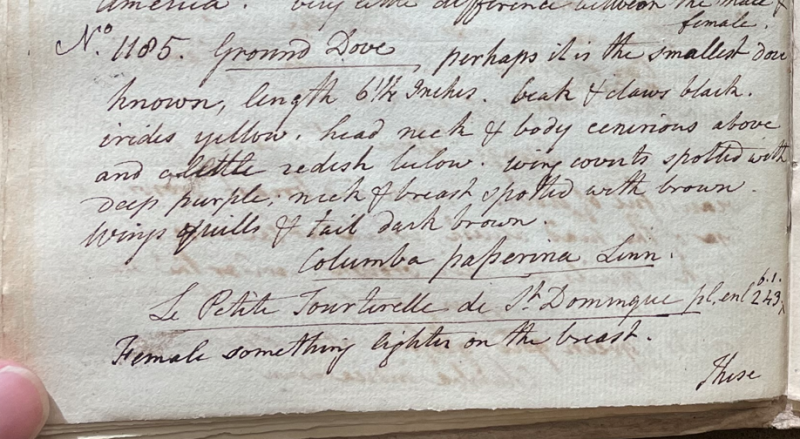 america. very little difference between the male &
female.
No. 1185. Ground Dove, perhaps it is the smallest dove
known, length 6 1/4 Inches. beak & claws black.
irides yellow. head neck & body cenirious above
and a little redish below. wing coverts spotted with
deep purple; neck & breast spotted with brown.
Wings quills & tail dark brown.
Columba paſserina Linn.
Le Petite Tourterelle de St. Domingue pl. enl 243
6.1.
Female something lighter on the breast.
These